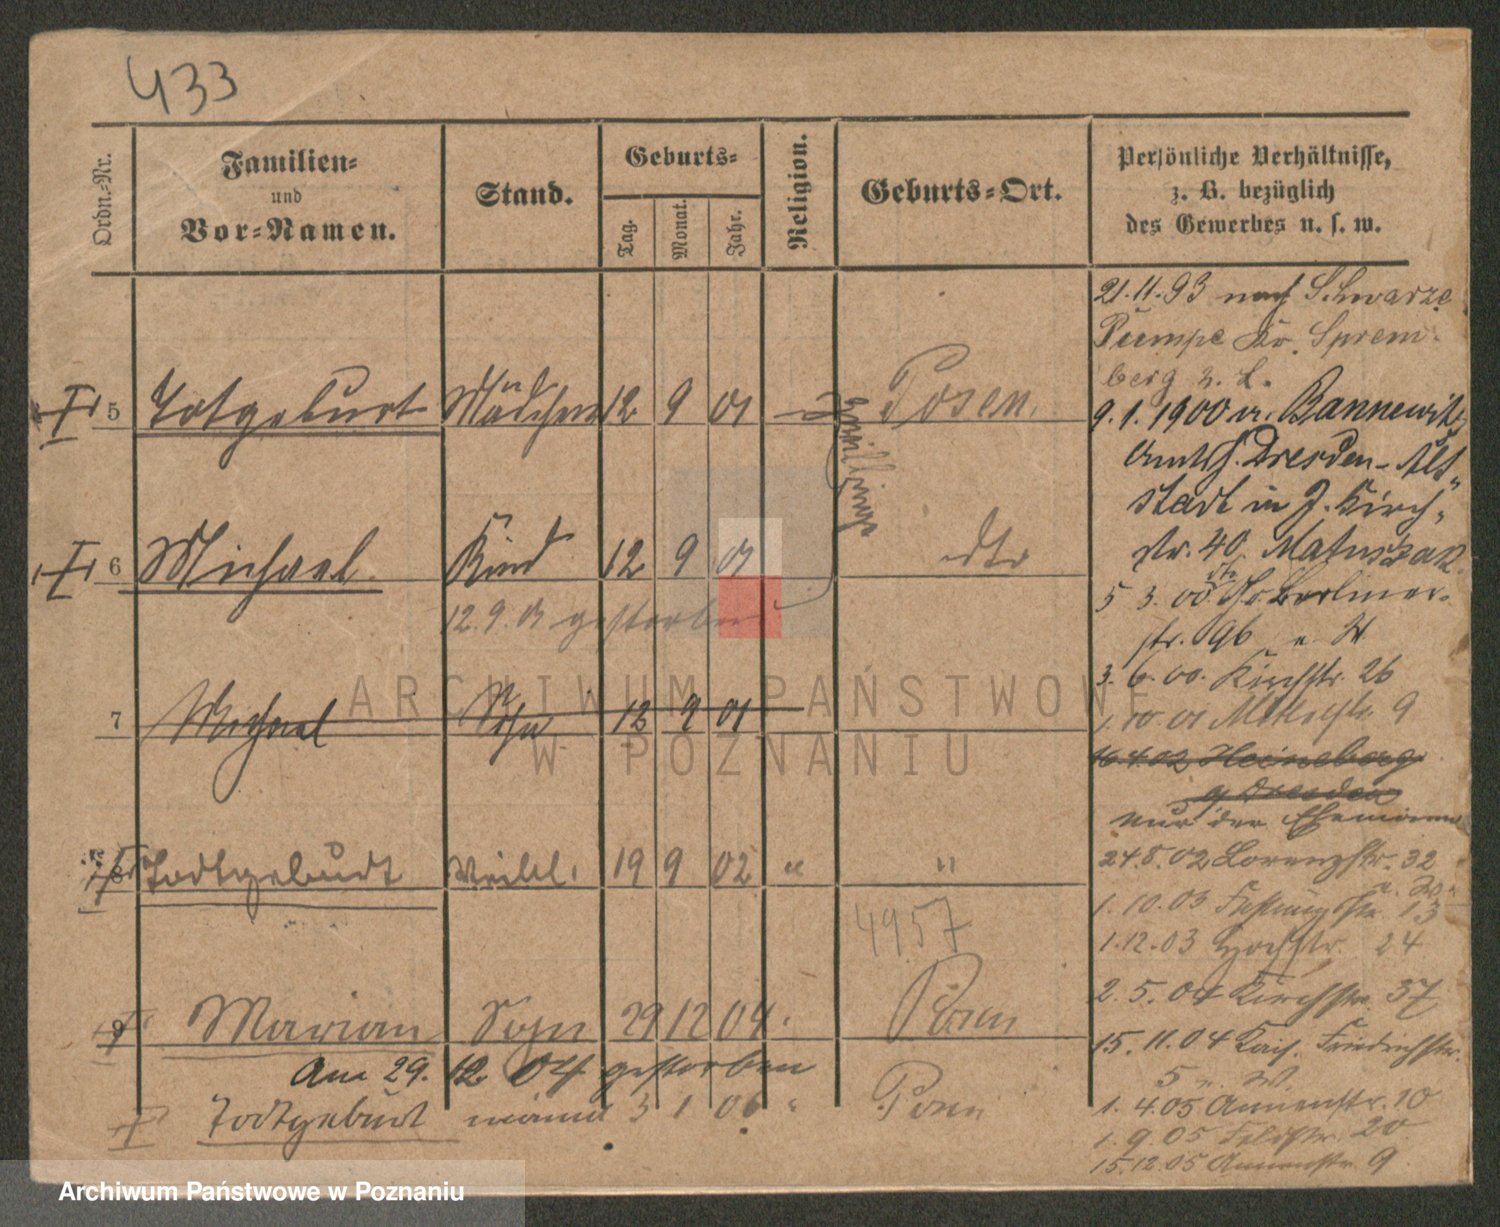 433
Ordn.-Nr.
Familien-
und
Vor-Namen.
Stand.
Geburts-
Tag.
Monat.
Jahr.
Religion.
Geburts-Ort.
Persönliche Verhältnisse,
z. B. bezüglich
des Gewerbes u. s. w.
5 Totgeburt Mädchen 12 9 01 Posen.
Zwillinge
6 Michael. Kind 12 9 01 dto
12.9.01 gestorben
7 Michael Sohn 12 9 01
8 Todtgeburt Weibl. 19 9 02 " "
4957
9 Marian Sohn 29 12 04. Posen
Am 29. 12. 04 gestorben
Todtgeburt männl 3 1 06 " Posen
21.11.93 nach Schwarze
Pumpe Kr. Sprem-
berg N. L.
9.1.1900 v. Bannewitz
Amtsh. Dresden-Alt-
stadt in J. Kirch-
str. 40. Matuszak
5 3. 00. Gr. Berliner-
str. 96
3. 6. 00. Kirchstr. 26
1. 10 01 9
16.4.02 Heineberg
Dresden
nur der Ehemann
24.8.02 Lorenzstr. 32
1. 10. 03 13
1.12.03 Hochstr. 24
2. 5. 04 Kirchstr. 37
15. 11. 04 Kais. Friedrichstr.
5
1. 4.05 Annenstr. 10
1. 9. 05 Feldstr. 20
15.12.05 Annenstr 9
ARCHIWUM PAŃSTWOWE
W POZNANIU
Archiwum Państwowe w Poznaniu